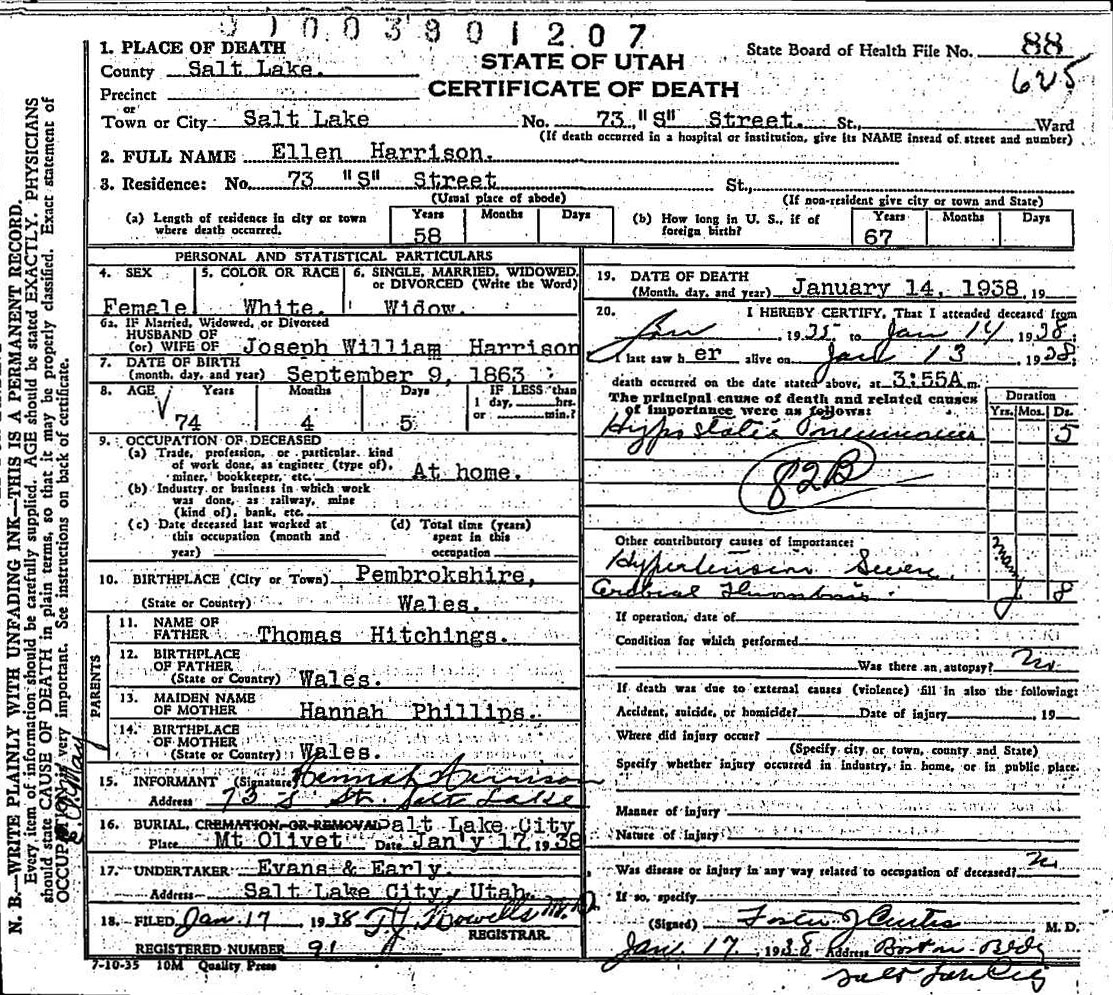 0 1 0 0 3 8 0 1 2 0 7
1. PLACE OF DEATH
County Salt Lake.
Precinct
or
Town or City Salt Lake No. 73 "S" Street. St., Ward
(If death occurred in a hospital or institution, give its NAME instead of street and number)
STATE OF UTAH
CERTIFICATE OF DEATH
State Board of Health File No. 88
625
2. FULL NAME Ellen Harrison.
3. Residence: No. 73 "S" Street St.,
(Usual place of abode) (If non-resident give city or town and State)
(a) Length of residence in city or town where death occurred. Years Months Days
58
(b) How long in U. S., if of foreign birth? Years Months Days
67
PERSONAL AND STATISTICAL PARTICULARS
4. SEX 5. COLOR OR RACE 6. SINGLE, MARRIED, WIDOWED, or DIVORCED (Write the Word)
Female White. Widow.
6a. IF Married, Widowed, or Divorced
HUSBAND OF
(or) WIFE OF Joseph William Harrison
7. DATE OF BIRTH
(month, day, and year) September 9, 1863
8. AGE Years Months Days IF LESS than
1 day, hrs.
or min.?
74 4 5
9. OCCUPATION OF DECEASED
(a) Trade, profession, or particular kind
of work done, as engineer (type of),
miner, bookkeeper, etc. At home.
(b) Industry or business in which work
was done, as railway, mine
(kind of), bank, etc.
(c) Date deceased last worked at
this occupation (month and
year)
(d) Total time (years)
spent in this
occupation
10. BIRTHPLACE (City or Town) Pembrokshire,
(State or Country) Wales.
PARENTS
11. NAME OF
FATHER Thomas Hitchings.
12. BIRTHPLACE
OF FATHER
(State or Country) Wales.
13. MAIDEN NAME
OF MOTHER Hannah Phillips.
14. BIRTHPLACE
OF MOTHER
(State or Country) Wales.
15. INFORMANT (Signature) Hannah Harrison
Address 73 S St. Salt Lake
16. BURIAL, CREMATION OR REMOVAL Salt Lake City
Place Mt Olivet Date Jan'y 17, 1938
17. UNDERTAKER Evans & Early.
Address Salt Lake City, Utah.
18. FILED Jan 17 1938 T.J. Howells M.D.
REGISTRAR.
REGISTERED NUMBER 91
7-10-35 10M Quality Press
19. DATE OF DEATH
(Month, day, and year) January 14, 1938, 19
20. I HEREBY CERTIFY, That I attended deceased from
Jan 1935 to Jan 14 1938
I last saw her alive on Jan 13 1938
death occurred on the date stated above, at 3:55A m.
The principal cause of death and related causes
of importance were as follows:
Duration
Yrs. Mos. Ds.
Hypostatic Pneumonia 5
82B
Other contributory causes of importance:
Hypertension Severe many
Cerebral Thrombosis 8
If operation, date of
Condition for which performed
Was there an autopsy? No
If death was due to external causes (violence) fill in also the following:
Accident, suicide, or homicide? Date of injury 19
Where did injury occur?
(Specify city or town, county and State)
Specify whether injury occurred in industry, in home, or in public place.
Manner of injury
Nature of injury
Was disease or injury in any way related to occupation of deceased? No
If so, specify
(Signed) Foster J Curtis M. D.
Jan. 17. 1938 Address Boston Bldg
Salt Lake City
N. B.—WRITE PLAINLY WITH UNFADING INK—THIS IS A PERMANENT RECORD.
Every item of information should be carefully supplied. AGE should be stated EXACTLY. PHYSICIANS
should state CAUSE OF DEATH in plain terms, so that it may be properly classified. Exact statement of
OCCUPATION is very important. See instructions on back of certificate.